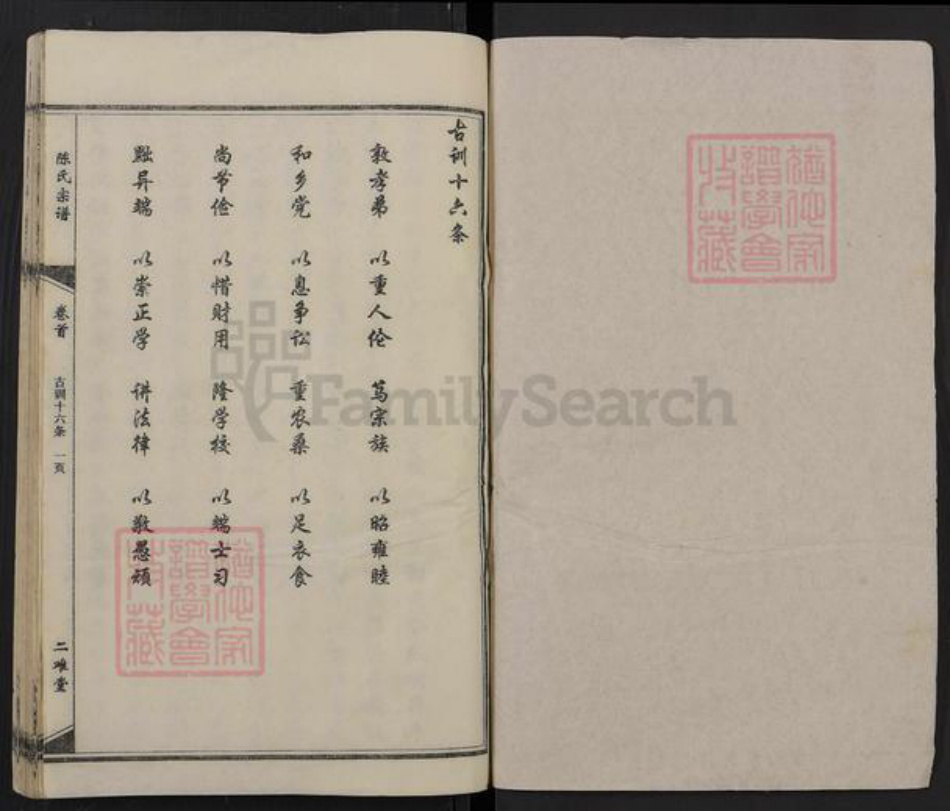 古训十六条
敦孝弟 以重人伦 笃宗族 以昭雍睦
和乡党 以息争讼 重农桑 以足衣食
尚节俭 以惜财用 隆学校 以端士习
黜异端 以崇正学 讲法律 以敬愚顽
陈氏宗谱 卷首 古训十六条 一页 二难堂
FamilySearch